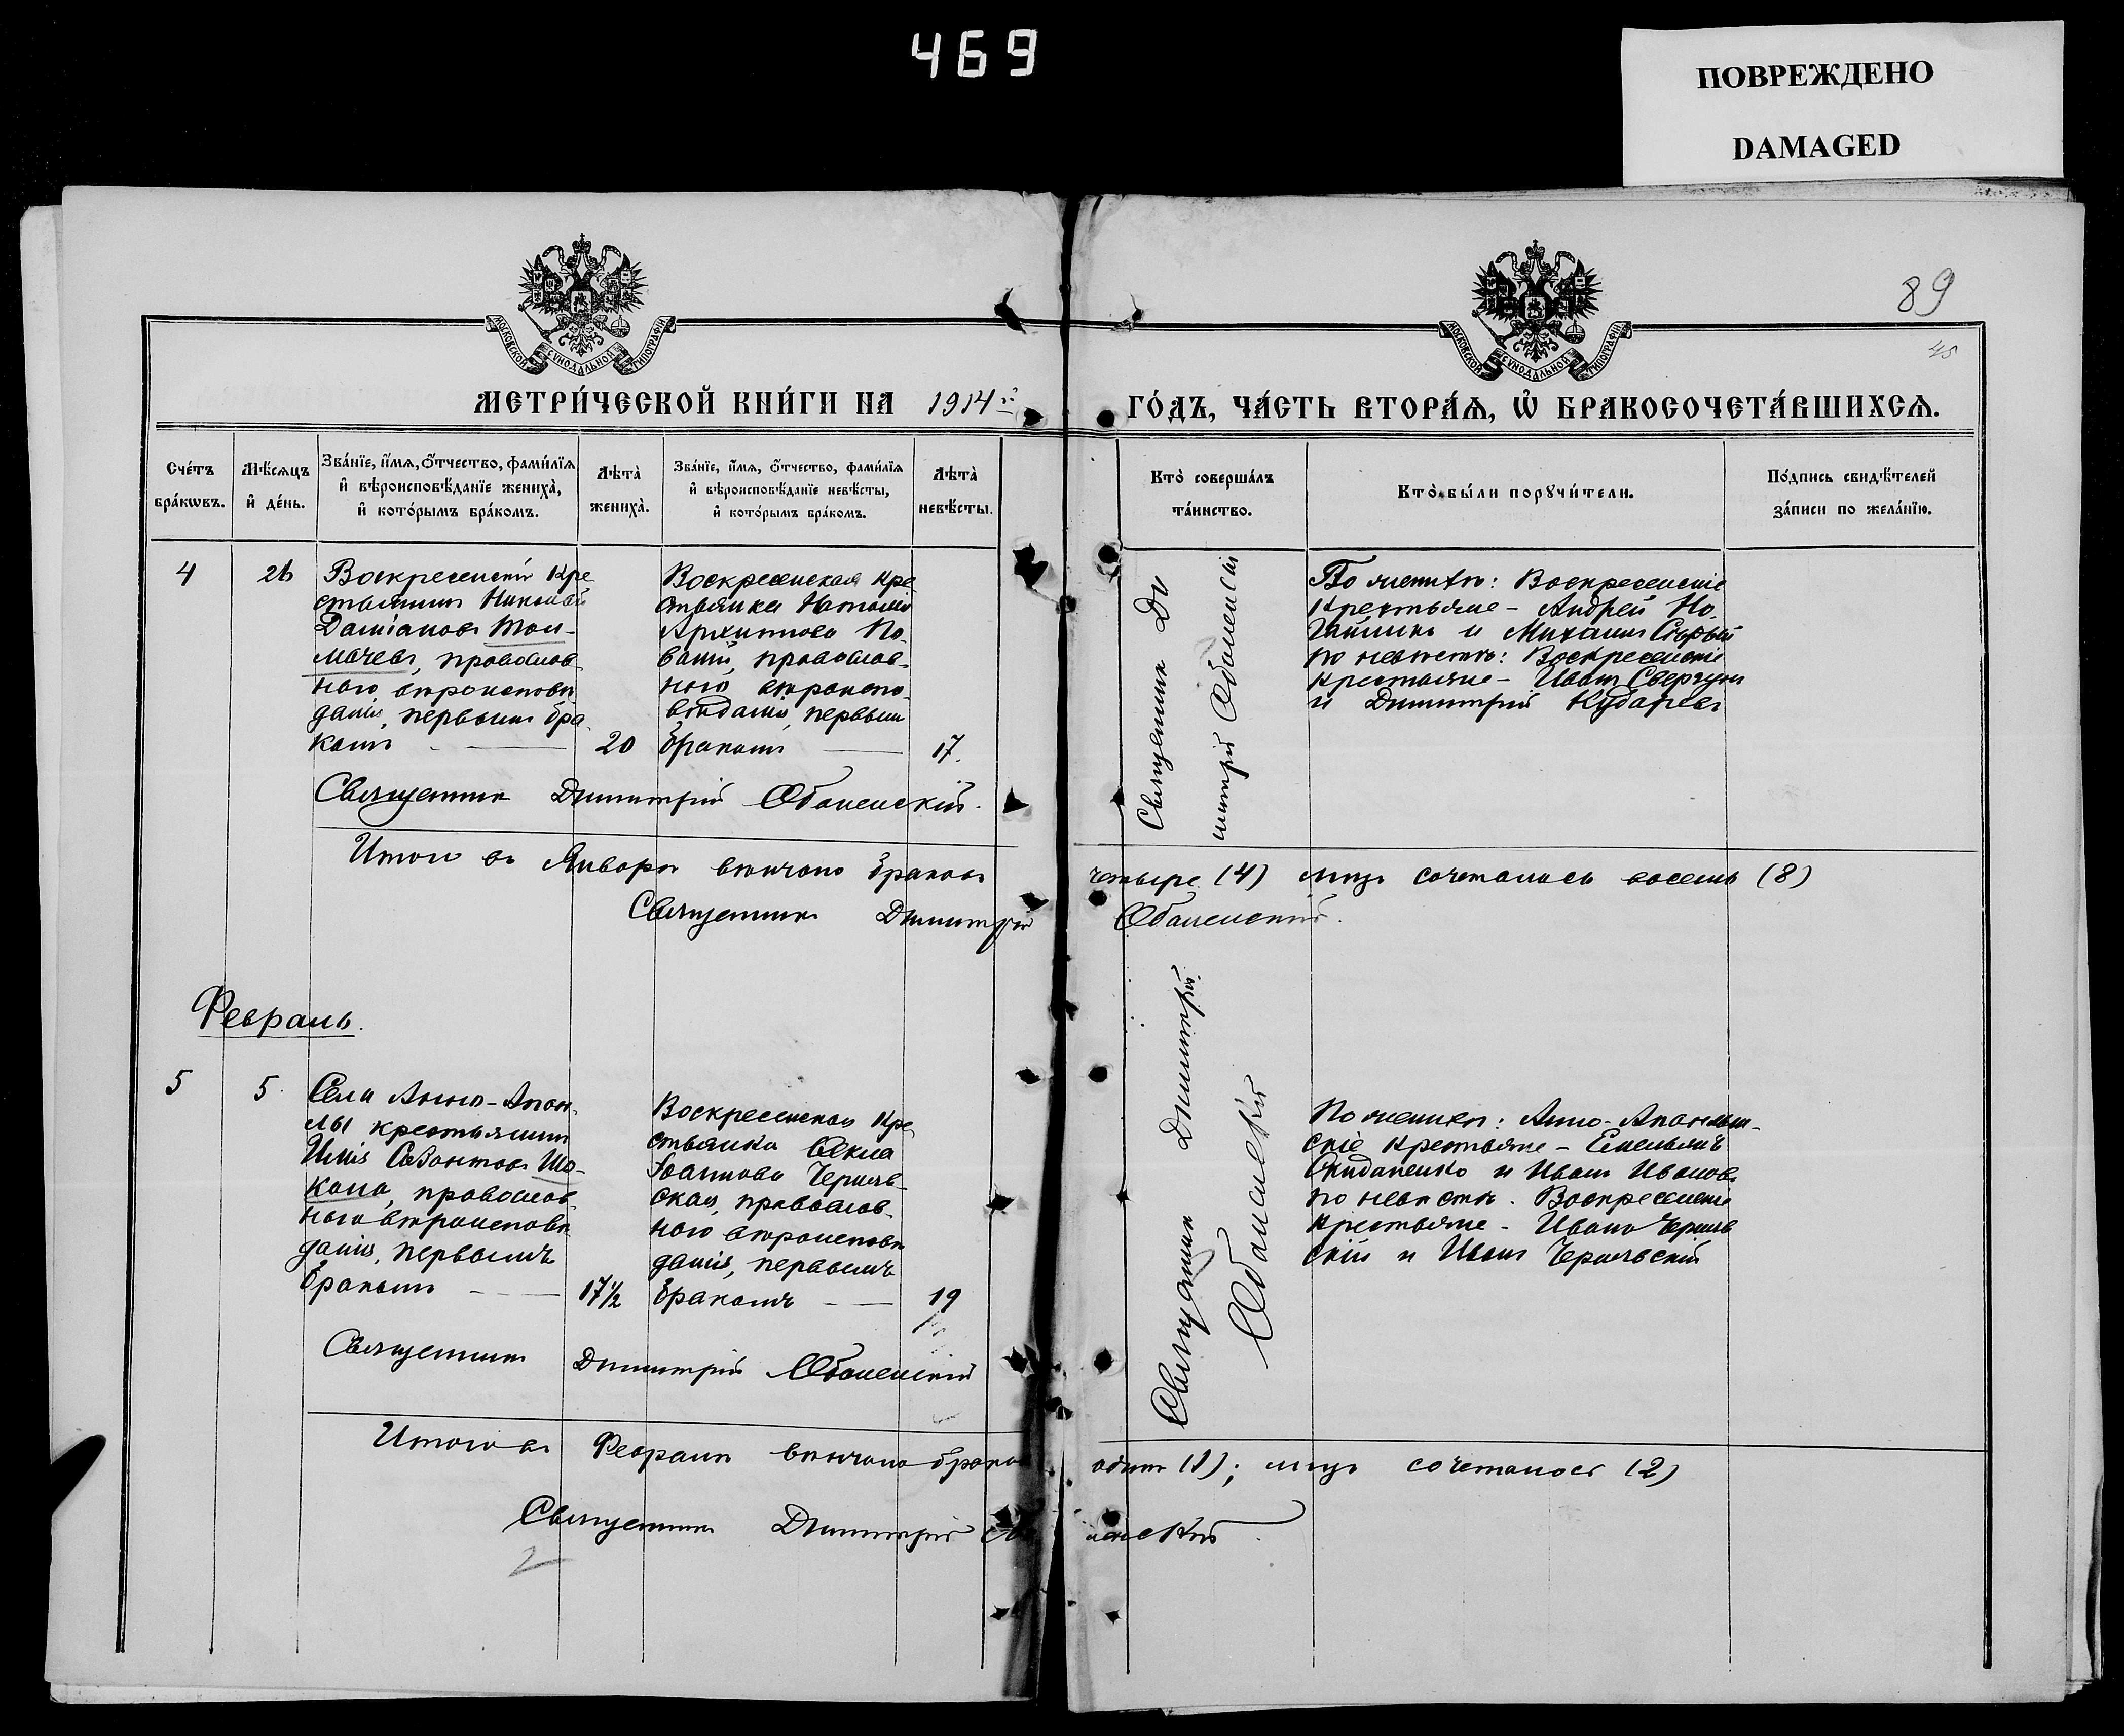 469
ПОВРЕЖДЕНО
DAMAGED
89
45
МОСКОВСКОЙ СѴНОДАЛЬНОЙ ТИПОГРАФІИ
МОСКОВСКОЙ СѴНОДАЛЬНОЙ ТИПОГРАФІИ
МЕТРИ́ЧЕСКОЙ КНИ́ГИ НА 1914й ГО́ДЪ, ЧА́СТЬ ВТОРА́Ѧ, Ѡ҆ БРАКОСОЧЕТА́ВШИХСѦ.
Сче́тъ бра́кѡвъ.
Мѣ́сѧцъ и҆ де́нь.
Зва́нїе, и҆́мѧ, ѻ҆́тчество, фами́лїѧ и҆ вѣроисповѣ́данїе жениха̀, и҆ кото́рымъ бра́комъ.
Лѣта̀ жениха̀.
Зва́нїе, и҆́мѧ, ѻ҆́тчество, фами́лїѧ и҆ вѣроисповѣ́данїе невѣ́сты, и҆ кото́рымъ бра́комъ.
Лѣта̀ невѣ́сты.
Кто̀ соверша́лъ та́инство.
Кто̀ бы́ли порꙋчи́тели.
По́дпись свидѣ́телей за́писи по жела́нїю.
4
26
Воскресенскій кре
стьянинъ Николай
Даміановъ Тол-
мачевъ, православ
наго вѣроисповѣ
данія, первымъ бра
комъ
20
Воскресенская кре
стьянка Наталія
Архиппова По-
православ-
наго вѣроиспо
вѣданія, первымъ
бракомъ
17.
Священникъ Ди
митрій Оболенскій
По женихѣ: Воскресенскіе
Крестьяне - Андрей
и Михаилъ Старый
по невѣстѣ: Воскресенскіе
крестьяне - Иванъ Свергунъ
и Димитрій Кударевъ
Священникъ Димитрій Оболенскій.
Итого въ Январѣ вѣнчано браковъ четыре (4) лицъ сочеталось восемь (8)
Священникъ Димитрій Оболенскій.
Февраль.
5
5
Села Анно-Апон-
лы крестьянинъ
Илія
православ
наго вѣроисповѣ
данія, первымъ
бракомъ
17½
Воскресенская кре
стьянка Ѳекла
Іоаннова Черняв-
ская, православ-
наго вѣроисповѣ
данія, первымъ
бракомъ
19
Священникъ Димитрій
Оболенскій
По женихѣ: Анно-
скіе крестьяне - Емельянъ
и Иванъ Ивановъ
по невѣстѣ. Воскресенскіе
крестьяне - Иванъ Черняв
скій и Иванъ Чернявскій
Священникъ Димитрій Оболенскій
Итого въ Февралѣ вѣнчано браковъ одинъ (1); лицъ сочеталось (2)
Священникъ Димитрій Оболенскій.
2